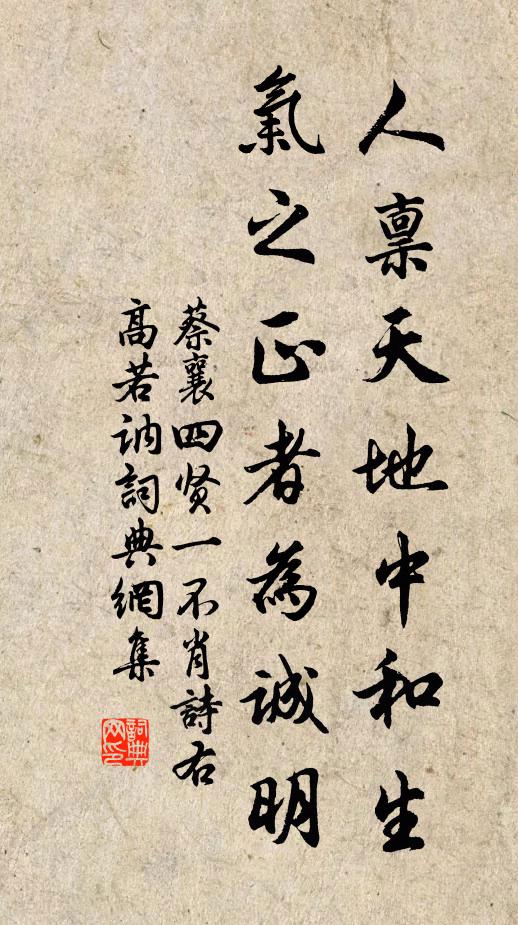 人禀天地中和生
氣之正者為誠明
蔡襄四贤一不肖詩右
高若讷詞典網集
詞典
网印